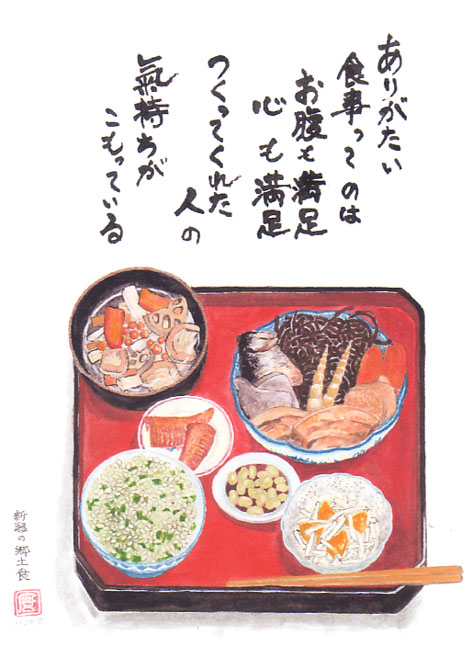 ありがたい
食事ってのは
お腹も満足
心も満足
つくってくれた
人の
氣持ちが
こもっている
新潟の郷土食